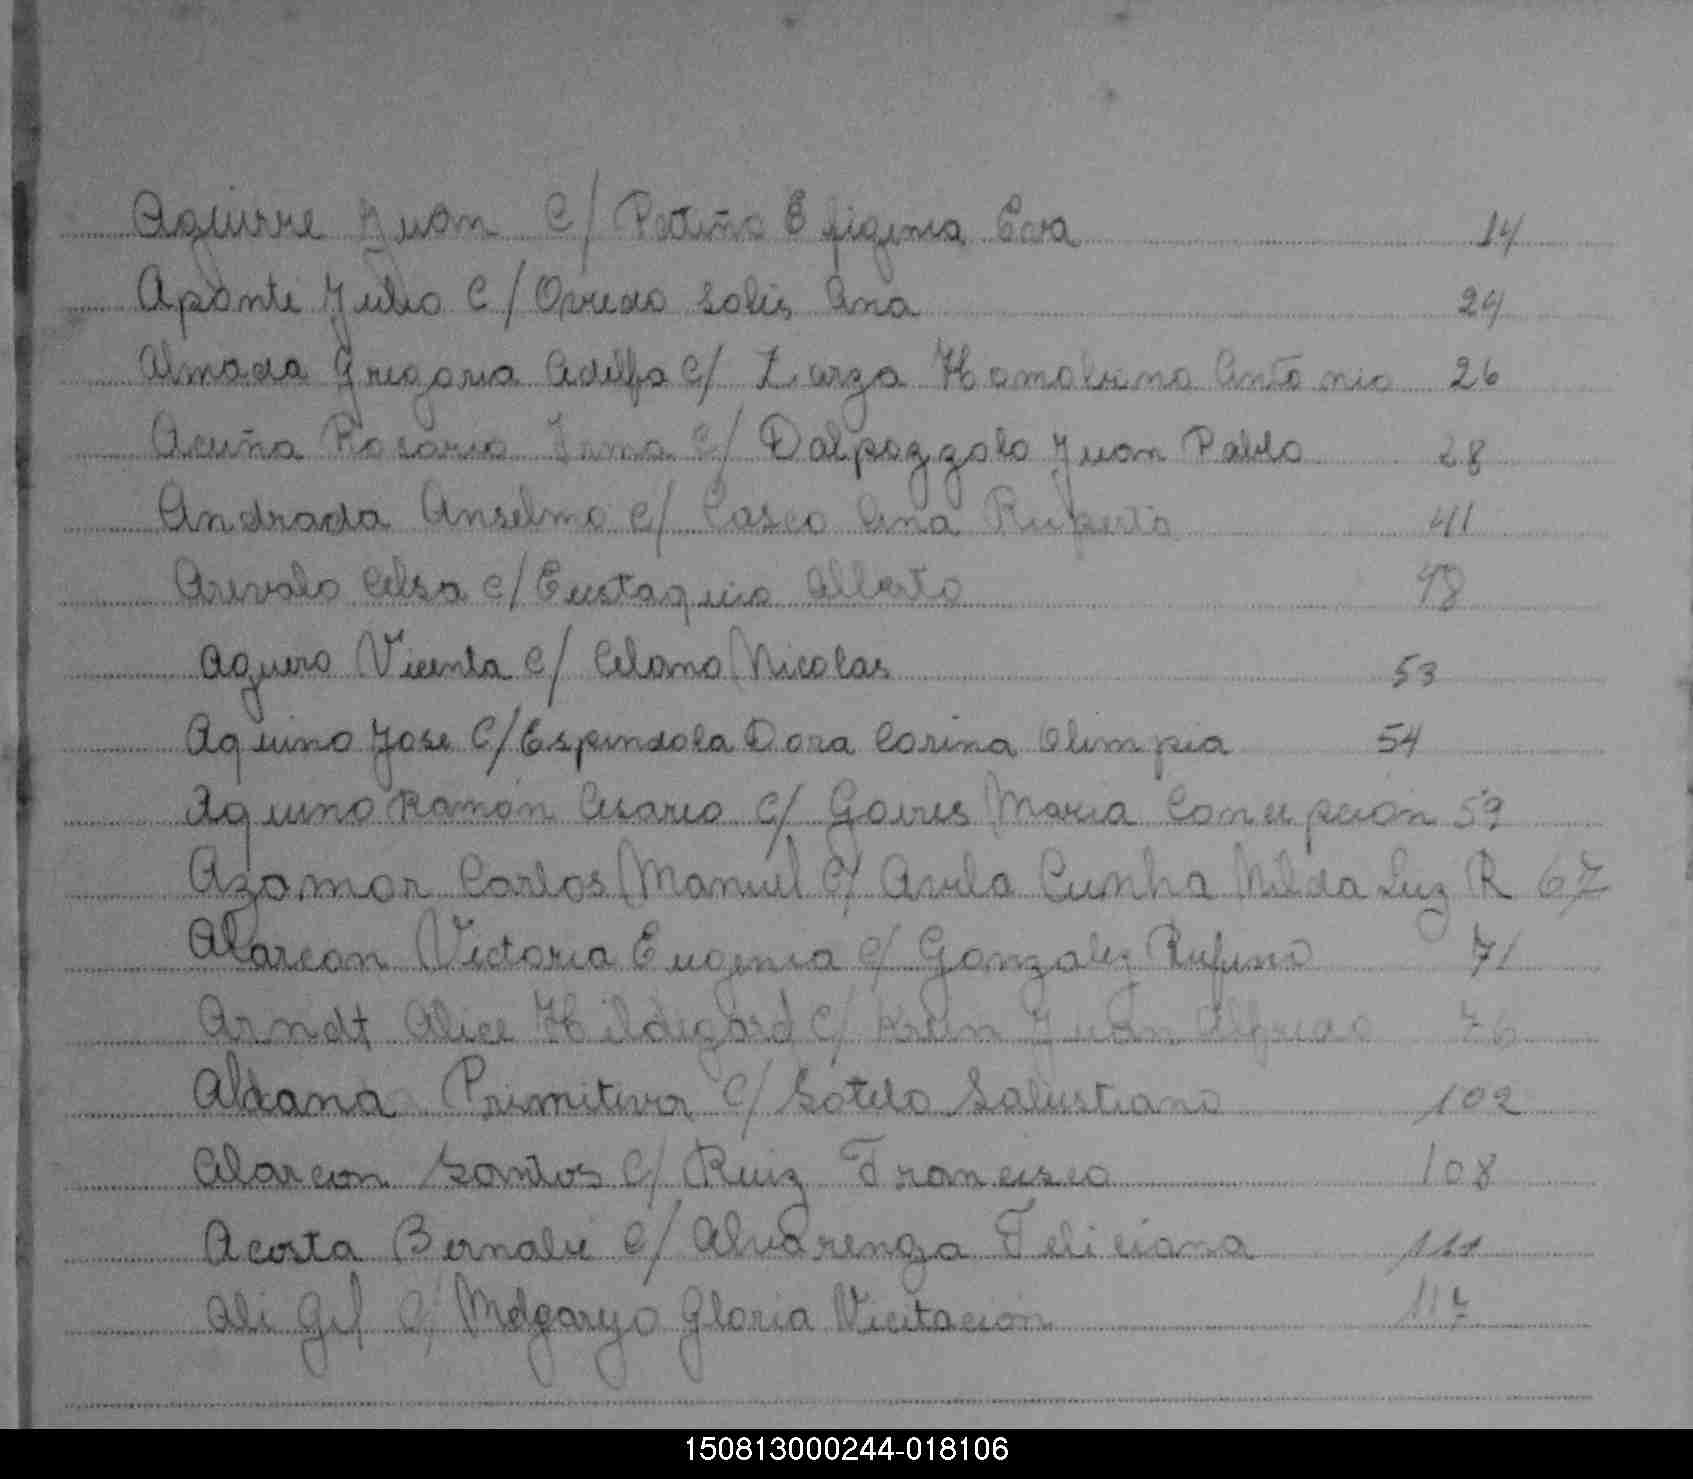 Aguirre Juan C/ Patiño Efigenia Eva 14
Aponte Julio C/ Oviedo Solis Ana 24
Almada Gregoria Adelfa C/ Zarza Homobono Antonio 26
Acuña Rosario Irma C/ Dalpozzolo Juan Pablo 28
Andrada Anselmo C/ Casco Ana Ruperta 41
Arevalo Celsa C/ Eustaquio Alberto 48
Aguero Vicenta C/ Celano Nicolas 53
Aquino Jose C/ Espindola Dora Corina Olimpia 54
Aquino Ramón Cesareo C/ Goires Maria Concepción 59
Azamor Carlos Manuel C/ Avila Cunha Nilda Luz R 67
Alarcon Victoria Eugenia C/ Gonzalez Rufino 71
Arndt Alice Hildegard C/ Juan Alfredo 76
Aldana Primitiva C/ Sotelo Salustiano 102
Alarcon Santos C/ Ruiz Francisco 108
Acosta Bernabe C/ Alvarenga Feliciana 111
Ali Gil C/ Melgarejo Gloria Vicitación 117
150813000244-018106